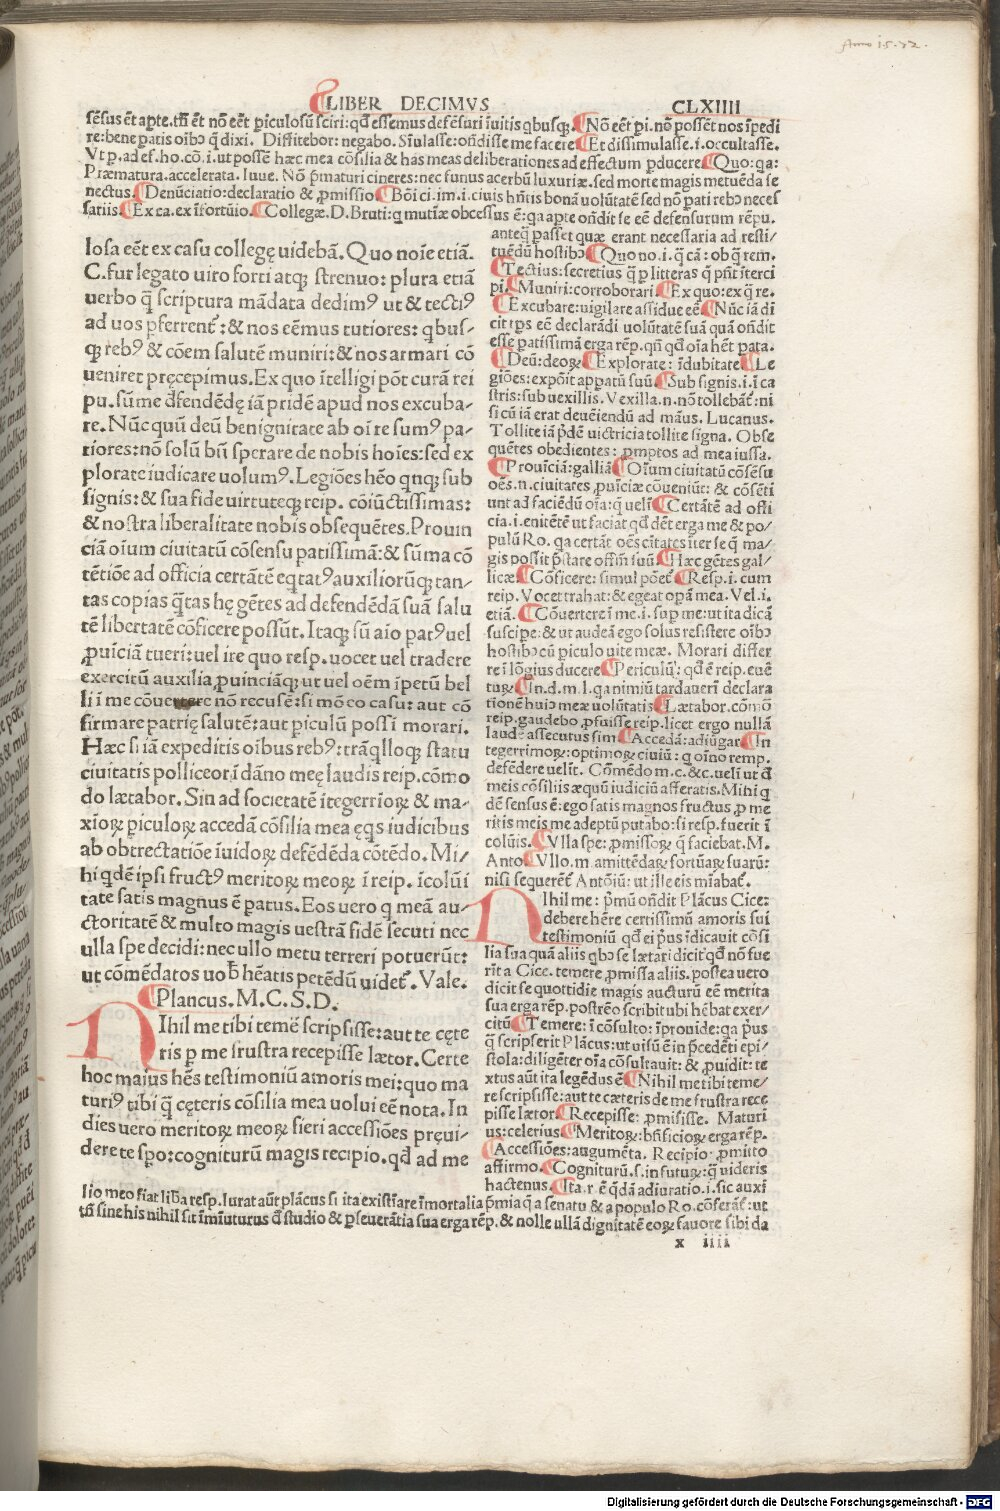 Anno 15.72.
LIBER DECIMVS CLXIIII
sēsus ēt apte. tñ ēt nō eēt ꝑiculosũ sciri: qđ essemus defēsuri ĩuitis qbusqꝫ. Nō eēt ꝑi. nō possēt nos ĩpedi
re: bene patis oĩbꝰ q̃ dixi. Diffitebor: negabo. Sĩulasse: oñdisse me facere Et dissimulasse. i. occultasse.
Vt p. ad ef. ho. cō. i. ut possē hæc mea cōsilia & has meas deliberationes ad effectum ꝑducere Quo: qa:
Præmatura. accelerata. Iuue. Nō p̃maturi cineres: nec funus acerbũ luxuriæ. sed morte magis metuēda se
nectus. Denũciatio: declaratio & ꝓmissio Boĩ ci. im. i. ciuis hñtis bonã uolũtatē sed nō pati rebꝰ neces
sariis. Ex ca. ex ĩfortũio. Collegæ. D. Bruti: q mutinæ obcessus ē: qa apte oñdit se eē defensurum rēpu.
losa eēt ex casu collegę uidebã. Quo noĩe etiã.
C. fur legato uiro forti atqꝫ strenuo: plura etiã
uerbo q̃ scriptura mãdata dedimꝰ ut & tectiꝰ
ad uos ꝑferrent̃: & nos eēmus tutiores: qbus-
qꝫ rebꝰ & cōem salutē muniri: & nos armari cō
ueniret pręcepimus. Ex quo ĩtelligi pōt curã rei
pu. sũme đfendēdę iã pridē apud nos excuba-
re. Nũc quũ deũ benignitate ab oĩ re sumꝰ pa-
ratiores: nō solũ bñ sperare de nobis hoĩes: sed ex
plorate iudicare uolumꝰ. Legiōes hēo qnqꝫ sub
signis: & sua fide uirtuteqꝫ reip. cōiũctissimas:
& nostra liberalitate nobis obsequētes. Prouin
ciã oĩum ciuitatũ cōsensu patissimã: & sũma cō
tētiōe ad officia certãtē eqtatꝰ auxiliorũqꝫ tan-
tas copias q̃tas hę gētes ad defendēdã suã salu
tē libertatē cōficere possũt. Itaqꝫ sũ aĩo patꝰ uel
ꝓuĩciã tueri: uel ire quo resp. uocet uel tradere
exercitũ auxilia ꝓuinciãqꝫ ut uel oēm ĩpetũ bel
li ĩ me cōuertere nō recusē: si mō eo casu: aut cō
firmare patrię salutē: aut ꝑiculũ possĩ morari.
Hæc si iã expeditis oĩbus rebꝰ: trãqlloqꝫ statu
ciuitatis polliceor: ĩ dãno meę laudis reip. cōmo
do lætabor. Sin ad societatē ĩtegerrĩoꝝ & ma-
xĩoꝝ ꝑiculoꝝ accedã cōsilia mea ęqs iudicibus
ab obtrectatiōe ĩuidoꝝ defēdēda cōtēdo. Mi-
hi qđē ipsi fructꝰ meritoꝝ meoꝝ ĩ reip. ĩcolũi
tate satis magnus ē patus. Eos uero q meã au-
ctoritatē & multo magis uestrã fidē secuti nec
ulla spe decidi: nec ullo metu terreri potuerũt:
ut cōmēdatos uob̃ hēatis petēdũ uidet̃. Vale.
Plancus. M. C. S. D.
NIhil me tibi temē scripsisse: aut te cęte
ris p me frustra recepisse lætor. Certe
hoc maius hēs testimoniũ amoris mei: quo ma
turiꝰ tibi q̃ cęteris cōsilia mea uolui eē nota. In
dies uero meritoꝝ meoꝝ fieri accessiōes pręui-
dere te spo: cogniturũ magis recipio. qđ ad me
anteq̃ passet quæ erant necessaria ad resti-
tuēdũ hostibꝰ Quo no. i. q̃ cã: ob q̃ rem.
Tectius: secretius q̃ p litteras q̃ pñt ĩterci
pi. Muniri: corroborari. Ex quo: ex q̃ re.
Excubare: uigilare assidue eē Nũc iã dĩ
cit tps eē declarãdi uolũtatē suã quã oñdit
esse patissimã erga rēp. qñ qđ oĩa hēt pata.
Deũ: deoꝝ Explorate: ĩdubitate Le
giōes: expōit appatũ suũ Sub signis. i. ĩ ca
stris: sub uexillis. Vexilla. n. nō tollebãt: ni
si cũ iã erat deueĩendũ ad mãus. Lucanus.
Tollite iã p̃dē uictricia tollite signa. Obse
quētes obedientes: ꝓmptos ad mea iussa.
Prouĩciã: galliã Oĩum ciuitatũ cōsēsu
oēs. n. ciuitates ꝓuĩciæ cōueniũt: & cōsēti
unt ad faciēdũ oĩa: q̃ uelĩ Certãtē ad offi
cia. i. enitētē ut faciat qđ dēt erga me & po-
pulũ Ro. qa certãt oēs cĩtates ĩter se q̃ ma-
gis possit p̃stare offim̃ suũ Hæc gētes gal-
licæ Cōficere: simul pōet̃ Resp. i. cum
reip. Vocet trahat: & egeat opã mea. Vel. i.
etiã. Cōuertere ĩ me. i. sup me: ut ita dicã
suscipe: & ut audeã ego solus resistere oĩbꝰ
hostibꝰ cũ ꝑiculo uite meæ. Morari differ
re ĩ lōgius ducere Periculũ: qđ ē reip. euē
tuꝝ In. d. m. l. qa nimiũ tardauerĩ declara
tionē huiꝰ meæ uolũtatis Lætabor. cōmō
reip. gaudebo ꝓfuisse reip. licet ergo nullã
laudē assecutus sim Accedã: adiũgar In
tegerrimoꝝ: optimoꝝ ciuiũ: q oĩno remp.
defēdere uelĩt. Cōmēdo m. c. &c. uelĩ ut đ
meis cōsiliis æquũ iudiciũ afferatis. Mihi q
dē sensus ē: ego satis magnos fructus ꝓ me
ritis meis me adeptũ putabo: si resp. fuerit ĩ
colũis. Vlla spe: ꝓmissoꝝ q̃ faciebat. M.
Anto Vllo. m. amittēdaꝝ fortũaꝝ suarũ:
nisi sequerēt̃ Antōiũ: ut ille eis mĩabat̃.
NIhil me: p̃mũ oñdit Plãcus Cice:
debere hēre certissimũ amoris sui
testimoniũ qđ ei p̃us ĩdicauit cōsi
lia sua quã aliis qbꝰ se lætari dicit qđ nō fue
rĩt a Cice. temere ꝓmissa aliis. postea uero
dicit se quottidie magis aucturũ eē merita
sua erga rēp. postrēo scribit ubi hēbat exer-
citũ Temere: ĩcōsulto: ĩprouide: qa p̃us
q̃ scripserit Plãcus: ut uisũ ē in p̃cedēti epi-
stola: diligēter oĩa cōsultauit: & ꝓuidit: te
xtus aũt ita legēdus ē Nihil me tibi teme-
re scripsisse: aut te cæteris de me frustra rece
pisse lætor Recepisse: ꝓmisisse. Maturi
us: celerius Meritoꝝ: bñficioꝝ erga rēp.
Accessiōes: augumēta. Recipio: ꝓmitto
affirmo. Cogniturũ. s. in futuꝝ: q̃ uideris
hactenus. Ita. r. ē q̃dã adiuratio. i. sic auxi
lio meo fiat lib̃a resp. Iurat aũt plãcus si ita existĩare ĩmortalia p̃mia q̃ a senatu & a populo Ro. cōferãt̃: ut
tñ sine his nihil sit ĩmĩuturus đ studio & ꝑseuerãtia sua erga rēp. & nolle ullã dignitatē eoꝝ fauore sibi da
x iiii
Digitalisierung gefördert durch die Deutsche Forschungsgemeinschaft - DFG